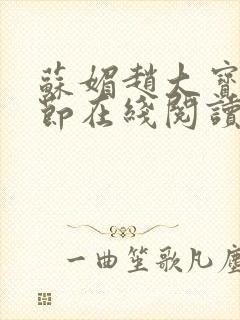 蘇媚趙大寶
節在綫閱讀
一曲笙歌凡塵